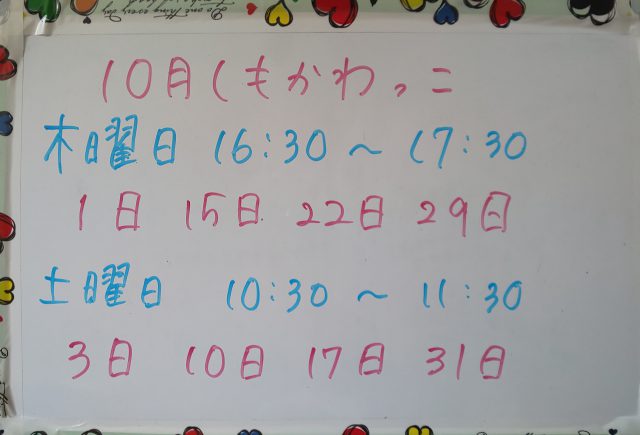 10月くもかわっこ
木曜日 16:30～17:30
1日 15日 22日 29日
土曜日 10:30～11:30
3日 10日 17日 31日